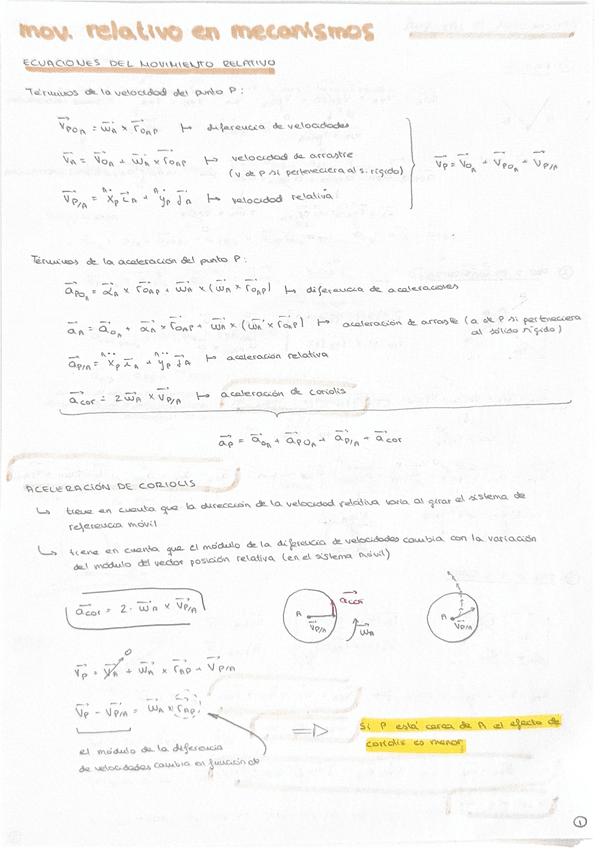 mov. relativo en mecanismos
ECUACIONES DEL MOVIMIENTO RELATIVO
Términos de la velocidad del punto P:
v⃗_PO_A = ω⃗_A × r⃗_O_AP ↦ diferencia de velocidades
v⃗_A = v⃗_O_A + ω⃗_A × r⃗_O_AP ↦ velocidad de arrastre
(v de P si perteneciera al s. rígido)
v⃗_P = v⃗_O_A + v⃗_PO_A + v⃗_P/A
v⃗_P/A = ᴬẋ_P i⃗_A + ᴬẏ_P j⃗_A ↦ velocidad relativa
Términos de la aceleración del punto P:
a⃗_PO_A = α⃗_A × r⃗_O_AP + ω⃗_A × (ω⃗_A × r⃗_O_AP) ↦ diferencia de aceleraciones
a⃗_A = a⃗_O_A + α⃗_A × r⃗_O_AP + ω⃗_A × (ω⃗_A × r⃗_O_AP) ↦ aceleración de arrastre (a de P si perteneciera
al sólido rígido)
a⃗_P/A = ᴬẍ_P i⃗_A + ᴬÿ_P j⃗_A ↦ aceleración relativa
a⃗_cor = 2 ω⃗_A × v⃗_P/A ↦ aceleración de coriolis
a⃗_P = a⃗_O_A + a⃗_PO_A + a⃗_P/A + a⃗_cor
ACELERACIÓN DE CORIOLIS
↳ tiene en cuenta que la dirección de la velocidad relativa varía al girar el sistema de
referencia móvil
↳ tiene en cuenta que el módulo de la diferencia de velocidades cambia con la variación
del módulo del vector posición relativa (en el sistema móvil)
a⃗_cor = 2 · ω⃗_A × v⃗_P/A
A
a⃗_cor
v⃗_P/A
ω⃗_A
A
v⃗_P/A
v⃗_P = v⃗_A + ω⃗_A × r⃗_AP + v⃗_P/A
0
v⃗_P - v⃗_P/A = ω⃗_A × r⃗_AP
⇒ Si P está cerca de A el efecto de
coriolis es menor
el módulo de la diferencia
de velocidades cambia en función de
1